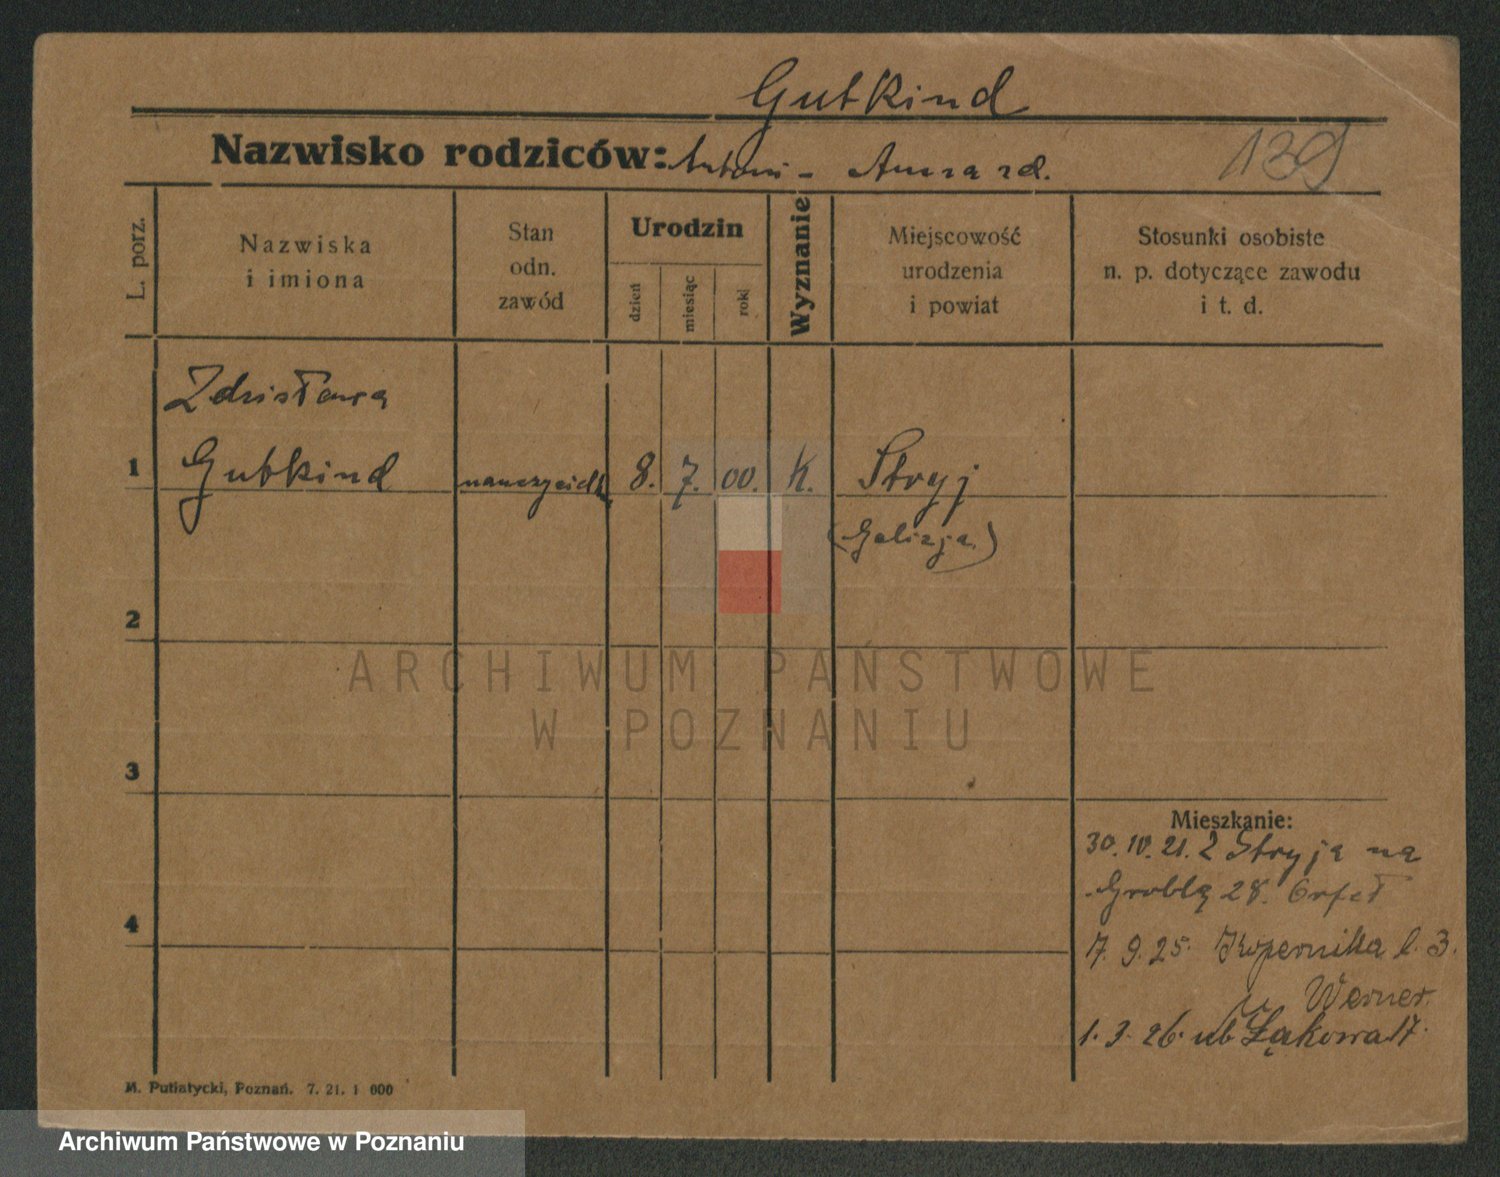 Gutkind
Nazwisko rodziców: Antoni - Anna zd.
139
L. porz.
Nazwiska
i imiona
Stan
odn.
zawód
Urodzin
dzień
miesiąc
rok
Wyznanie
Miejscowość
urodzenia
i powiat
Stosunki osobiste
n. p. dotyczące zawodu
i t. d.
Zdzisława
1 Gutkind nauczycielka 8. 7. 00. K. Stryj
(Galizja)
2
ARCHIWUM PAŃSTWOWE
W POZNANIU
3
Mieszkanie:
30. IV. 21. Z Stryja na
Groblą 28.
4
7. 9. 25. Kopernika l. 3.
u Werner.
1. 3. 26. ub Łąkowa 17.
M. Putiatycki, Poznań. 7. 21. 1 000
Archiwum Państwowe w Poznaniu